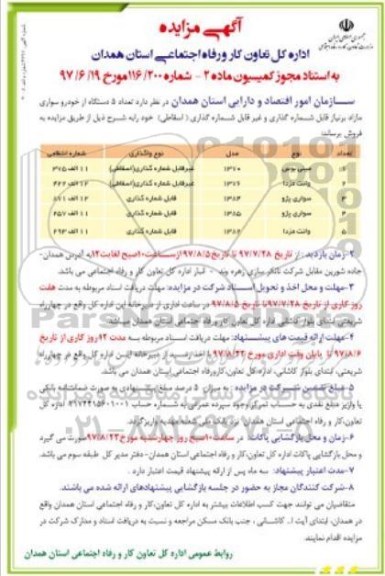 آگهی مزایده
جمهوری اسلامی ایران
اداره کل تعاون کار و رفاه اجتماعی استان همدان
به استناد مجوز کمیسیون ماده ۲ - شماره ۱۱۶/۲۰۰ مورخ ۹۷/۶/۱۹
سازمان امور اقتصاد و دارایی استان همدان در نظر دارد تعداد ۵ دستگاه از خودرو سواری
مازاد برنیاز قابل شماره گذاری و غیر قابل شماره گذاری ( اسقاطی) خود رابه شرح ذیل از طریق مزایده به
فروش برساند:
تعداد نوع مدل نوع واگذاری شماره انتظامی
مینی بوس ۱۳۷۰ غیرقابل شماره گذاری(اسقاطی) ۱۱ الف ۳۷۵
۲ وانت مزدا ۱۳۷۶ غیرقابل شماره گذاری(اسقاطی)
۳ سواری پژو ۱۳۸۴ قابل شماره گذاری
۴ سواری پژو ۱۳۸۵ قابل شماره گذاری ۱۱ الف ۴۵۷
۵ وانت مزدا قابل شماره گذاری
۲-زمان بازدید : از تاریخ ۹۷/۷/۲۸ تا تاریخ ۹۷/۸/۵ از ساعت ۱۰صبح لغایت ۱۲ به آدرس همدان-
جاده شورین مقابل شرکت تانکر سازی رهره وند - انبار اداره کل تعاون کار و رفاه اجتماعی می باشد.
۳-مهلت و محل اخذ و تحویل اسناد شرکت در مزایده: مهلت دریافت اسناد مربوطه به مدت هفت
روز کاری از تاریخ ۹۷/۷/۲۸ تا تاریخ ۹۷/۸/۵ در ساعت اداری از دبیرخانه این اداره کل واقع در چهارراه
شریعتی، ابتدای بلوار کاشانی اداره کل تعاون کار ورفاه اجتماعی استان همدان میباشد.
۴-مهلت ارائه قیمت های پیشنهاد: مهلت دریافت اسناد مربوطه به مدت ۱۲روز کاری از تاریخ
۹۷/۸/۶ تا پایان وقت اداری مورخ ۹۷/۸/۲۲ با اخذ رسید از دبیرخانه این اداره کل واقع در چهارراه
شریعتی، ابتدای بلوار کاشانی، اداره کل تعاون کار ورفاه اجتماعی استان همدان می باشد.
۵-مبلغ تضمین شرکت در مزایده : به میزان ۵ درصد مبلغ پیشنهادی به صورت ضمانتنامه بانکی
یا واریز مبلغ نقدی به حساب تمرکز وجوه سپرده عمرانی به شماره حساب اداره کل
تعاون،کار و رفاه اجتماعی استان همدان نزد بانک ملی شعبه مهدیه واریز گردد.
۶-زمان و محل بازگشایی پاکات: در ساعت ۱۰صبح روز چهارشنبه مورخ ۹۷/۸/۲۳ صورت می گیرد
و محل بازگشایی پاکات اداره کل تعاون،کار و رفاه اجتماعی استان همدان-دفتر مدیر کل طبقه سوم می باشد.
۷-مدت اعتبار پیشنهاد: سه ماه پس از ارائه پیشنهاد قیمت اعتبار دارد .
۸-شرکت کنندگان مجاز به حضور در جلسه بازگشایی پیشنهادهای ارائه شده می باشند.
متقاضیان می توانند جهت کسب اطلاعات بیشتر به اداره کل تعاون کار و رفاه اجتماعی استان همدان واقع
در همدان، ابتدای آیت ا.. کاشانی ، جنب بانک مسکن مراجعه و نسبت به دریافت اسناد و مدارک شرکت در
مزایده اقدام نمایند.
روابط عمومی اداره کل تعاون کار و رفاه اجتماعی استان همدان